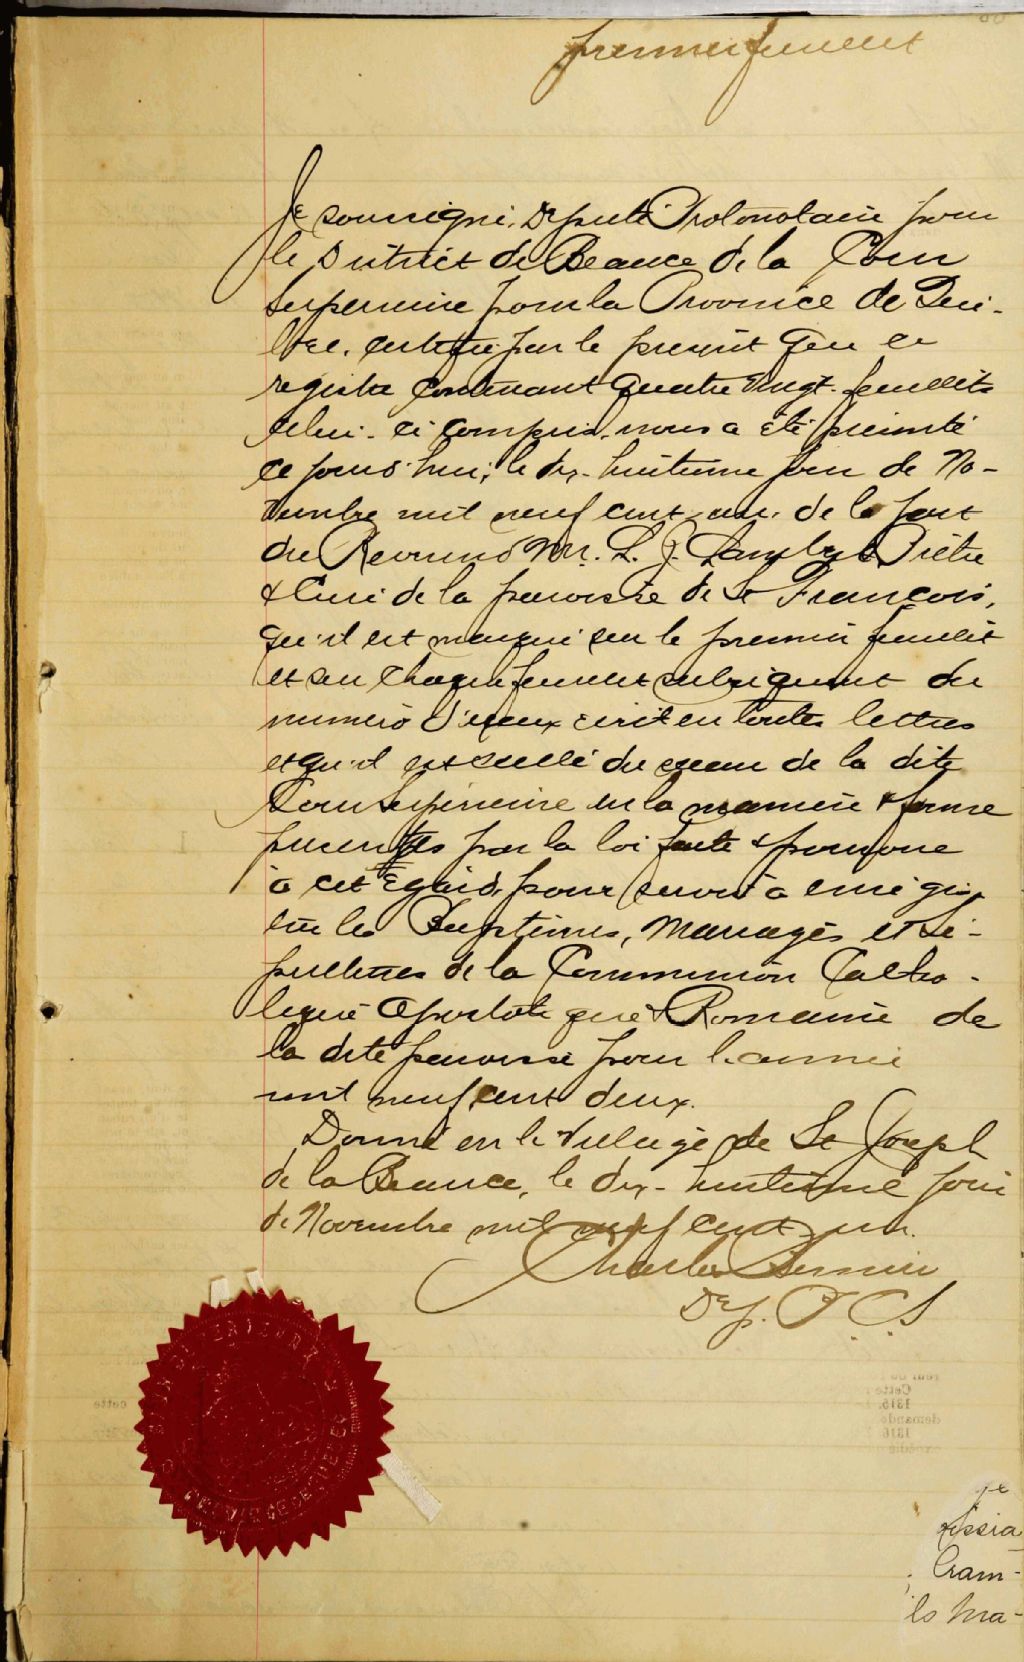 premier feuillet
Je soussigné, Député Protonotaire pour
le District de Beauce de la Cour
Supérieure pour la Province de Qué-
bec, certifie par le présent que ce
registre contenant quatre vingt feuillets
celui-ci compris, nous a été présenté
ce jourd'hui, le dix-huitième jour de No-
vembre mil neuf cent un, de la part
du Révérend Mr. L. J. Prêtre
& Curé de la paroisse de St François,
qu'il est marqué sur le premier feuillet
et sur chaque feuillet subséquent du
numéro d'iceux écrit en toutes lettres
et qu'il est scellé du sceau de la dite
Cour Supérieure en la manière & forme
prescrites par la loi faite & pourvue
à cet égard, pour servir à enrégis-
trer les Baptêmes, Mariages et Sé-
pultures de la Communion Catho-
lique Apostolique & Romaine de
la dite paroisse pour l'année
mil neuf cent deux.
Donné en le village de St Joseph
de la Beauce, le dix-huitième jour
de Novembre mil neuf cent un.
Charles Bernier
Dep. P. C. S
PROVINCE DE QUEBEC
Cette
1315.
demande
1316
cette
issia
Cram-
ls Ma-